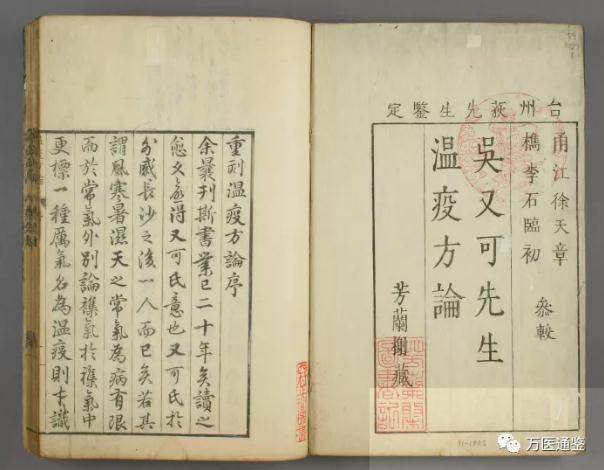 台州荻先生鑒定
甬江徐天章
檇李石臨初
叅較
吳又可先生
温疫方論
芳蘭榭藏
重刻温疫方論序
余曩刊斯書業已二十年矣讀之
愈久得又可氏意也又可氏於
外感長沙之後一人而已矣若其
謂風寒暑濕天之常氣為病有限
而於常氣外別論襍氣於襍氣中
更標一種厲氣名為温疫則未識
万医通鉴